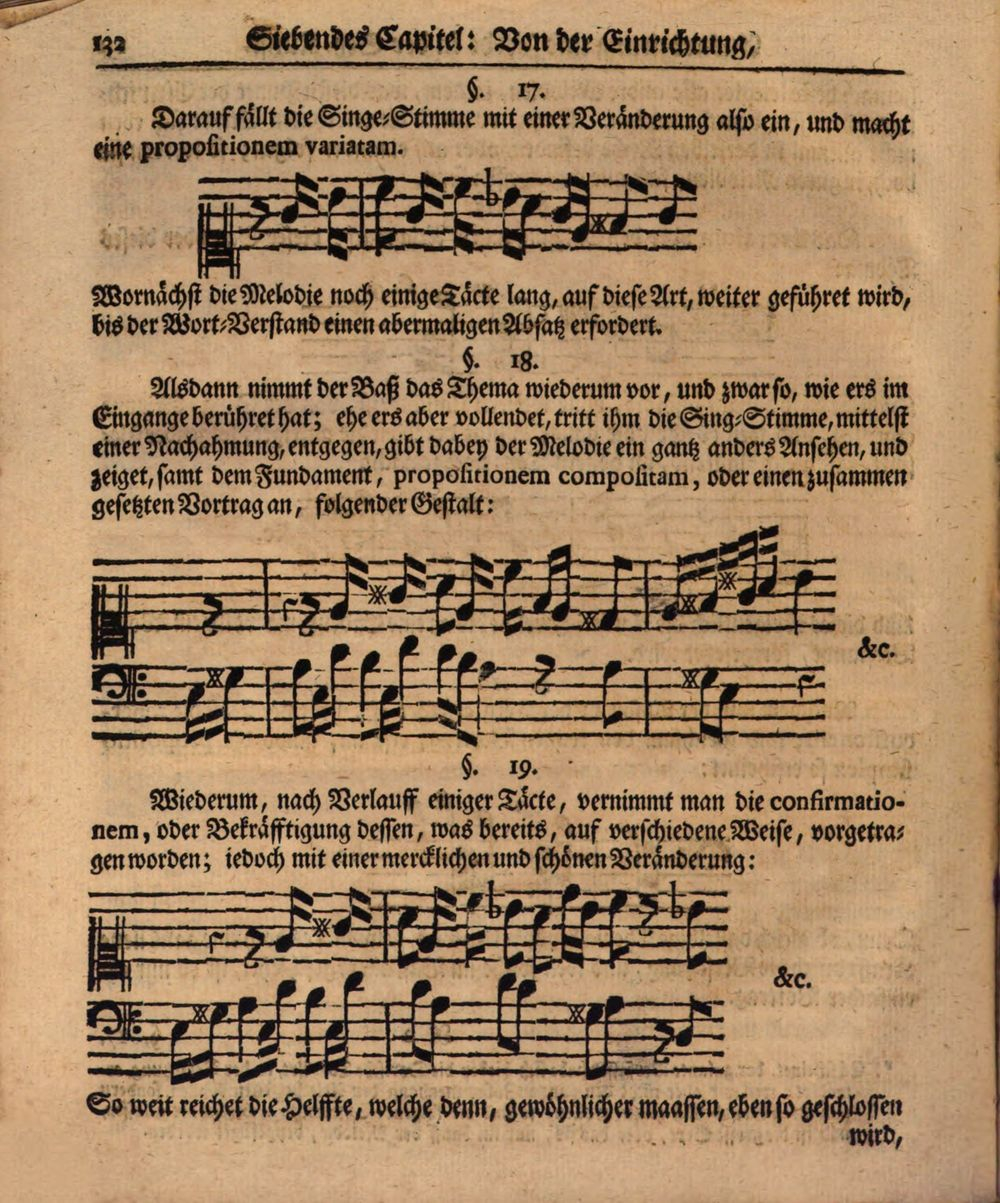 132 Siebendes Capitel: Von der Einrichtung,
§. 17.
Darauf fällt die Singe-Stimme mit einer Veränderung also ein, und macht
eine propositionem variatam.
Wornächst die Melodie noch einige Täcte lang, auf diese Art, weiter geführet wird,
bis der Wort-Verstand einen abermaligen Absatz erfordert.
§. 18.
Alsdann nimmt der Baß das Thema wiederum vor, und zwar so, wie ers im
Eingange berühret hat; ehe ers aber vollendet, tritt ihm die Sing-Stimme, mittelst
einer Nachahmung, entgegen, gibt dabey der Melodie ein gantz anders Ansehen, und
zeiget, samt dem Fundament, propositionem compositam, oder einen zusammen
gesetzten Vortrag an, folgender Gestalt:
&c.
§. 19.
Wiederum, nach Verlauff einiger Täcte, vernimmt man die confirmatio-
nem, oder Bekräfftigung dessen, was bereits, auf verschiedene Weise, vorgetra-
gen worden; iedoch mit einer mercklichen und schönen Veränderung:
&c.
So weit reichet die Helffte, welche denn, gewöhnlicher maassen, eben so geschlossen
wird,